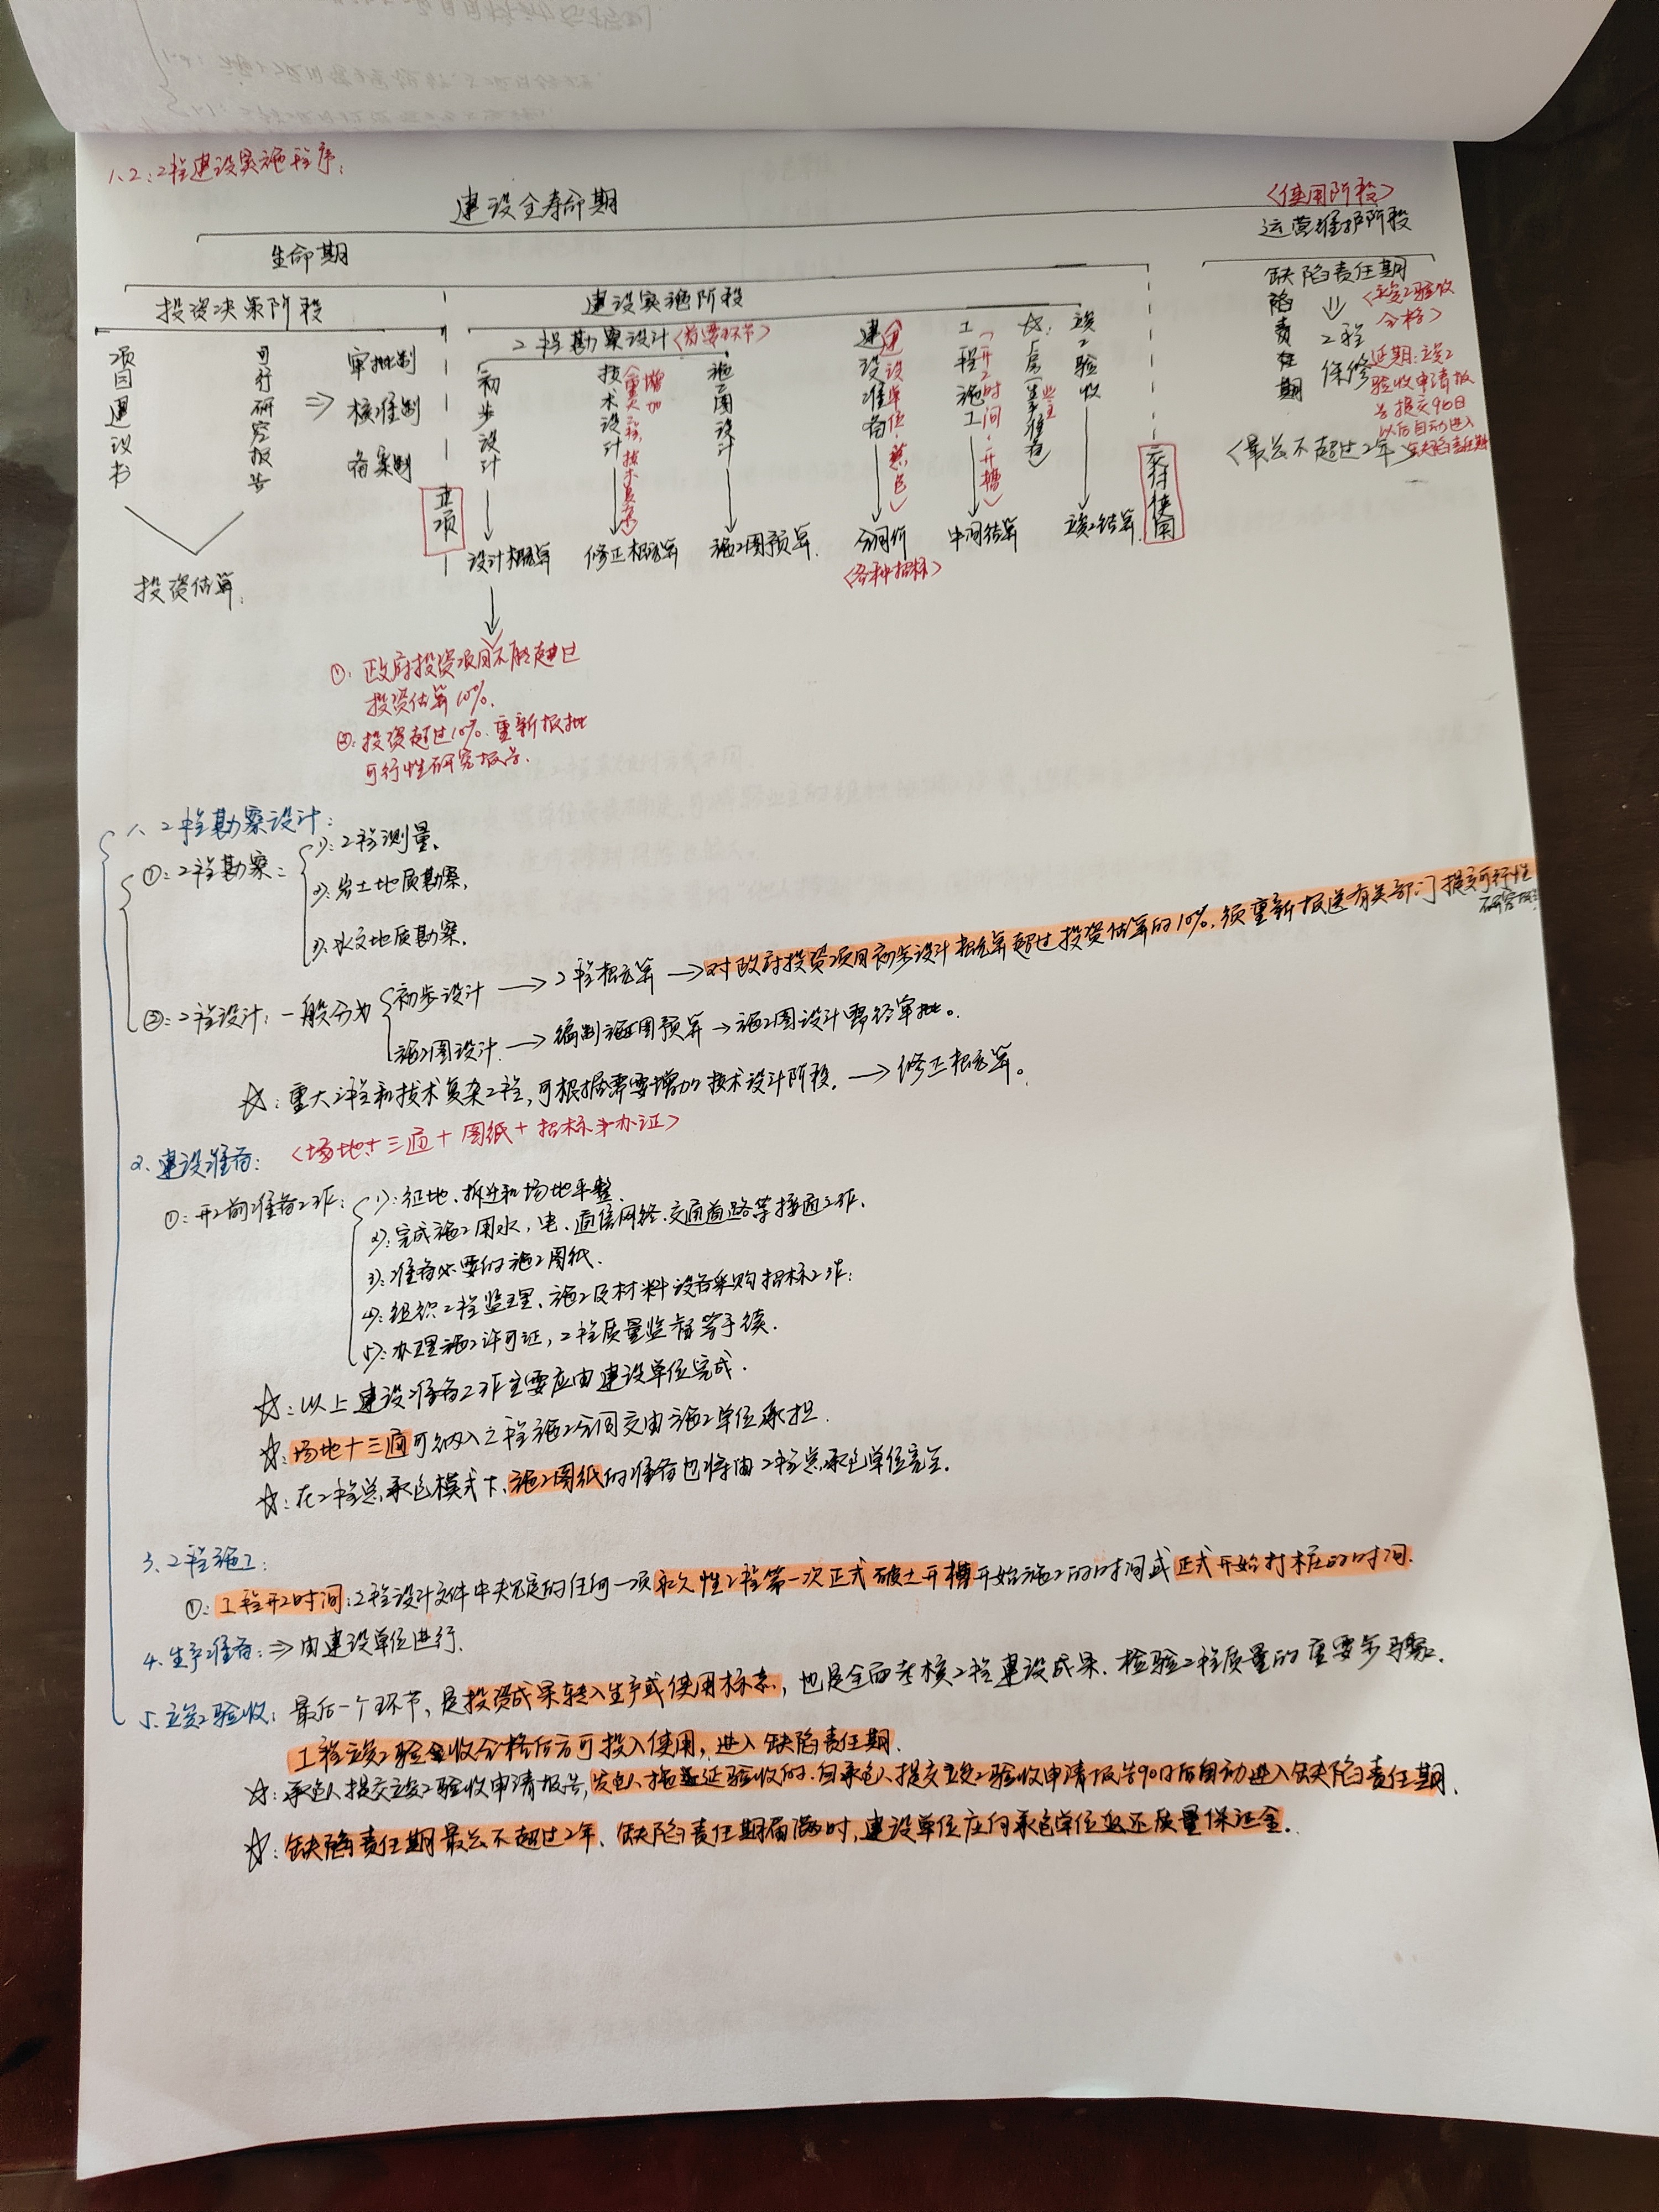 1.2:工程建设实施程序:
建设全寿命期
<使用阶段>
运营维护阶段
生命期
缺陷责任期
投资决策阶段
建设实施阶段
项目建议书
可行研究报告
⇒
审批制
核准制
备案制
立项
工程勘察设计<首要环节>
初步设计
技术设计
增加
<重大工程,技术复杂>
施工图设计
建设准备
<建设单位·
工程施工
<开工时间·开槽>
☆:
竣工验收
交付使用
缺陷责任期
⇓
工程
保修
<竣工验收
合格>
延期:竣工
验收申请报
告提交90日
以后自动进入
缺陷责任期
<最长不超过2年>
投资估算.
设计概算
修正概算
施工图预算.
合同价
<各种招标>
中间结算
竣工结算
①:政府投资项目不能超过
投资估算10%.
②:投资超过10%.重新报批
可行性研究报告.
1、工程勘察设计:
①:工程勘察:
1):工程测量.
2):岩土地质勘察.
3):水文地质勘察.
②:工程设计:一般分为
初步设计→工程概算→对政府投资项目初步设计概算超过投资估算的10%.须重新报送有关部门提交可行性
研究报告
施工图设计.→编制施工图预算→施工图设计需经审批。
☆:重大工程和技术复杂工程,可根据需要增加技术设计阶段.→修正概算。
2、建设准备:<场地+三通+图纸+招标+办证>
①:开工前准备工作:
1):征地、拆迁和场地平整.
2):完成施工用水,电、通信网络、交通道路等接通工作.
3):准备必要的施工图纸.
4):组织工程监理、施工及材料设备采购招标工作:
5):办理施工许可证,工程质量监督等手续.
☆:以上建设准备工作主要应由建设单位完成.
☆:场地十三通可纳入工程施工合同交由施工单位承担.
☆:在工程总承包模式下,施工图纸的准备也将由工程总承包单位完全.
3、工程施工:
①:工程开工时间:工程设计文件中规定的任何一项永久性工程第一次正式破土开槽开始施工的时间或正式开始打桩的时间.
4、生产准备:⇒由建设单位进行.
5、竣工验收:最后一个环节,是投资成果转入生产或使用标志,也是全面考核工程建设成果、检验工程质量的重要步骤.
工程竣工验收合格后方可投入使用,进入缺陷责任期.
☆:承包人提交竣工验收申请报告,发包人拖延验收的.自承包人提交竣工验收申请报告90日后自动进入缺陷责任期.
☆:缺陷责任期最长不超过2年、缺陷责任期届满时,建设单位应向承包单位返还质量保证金.